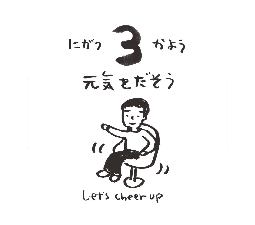 にがつ 3 かよう
元気をだそう
Let's cheer up